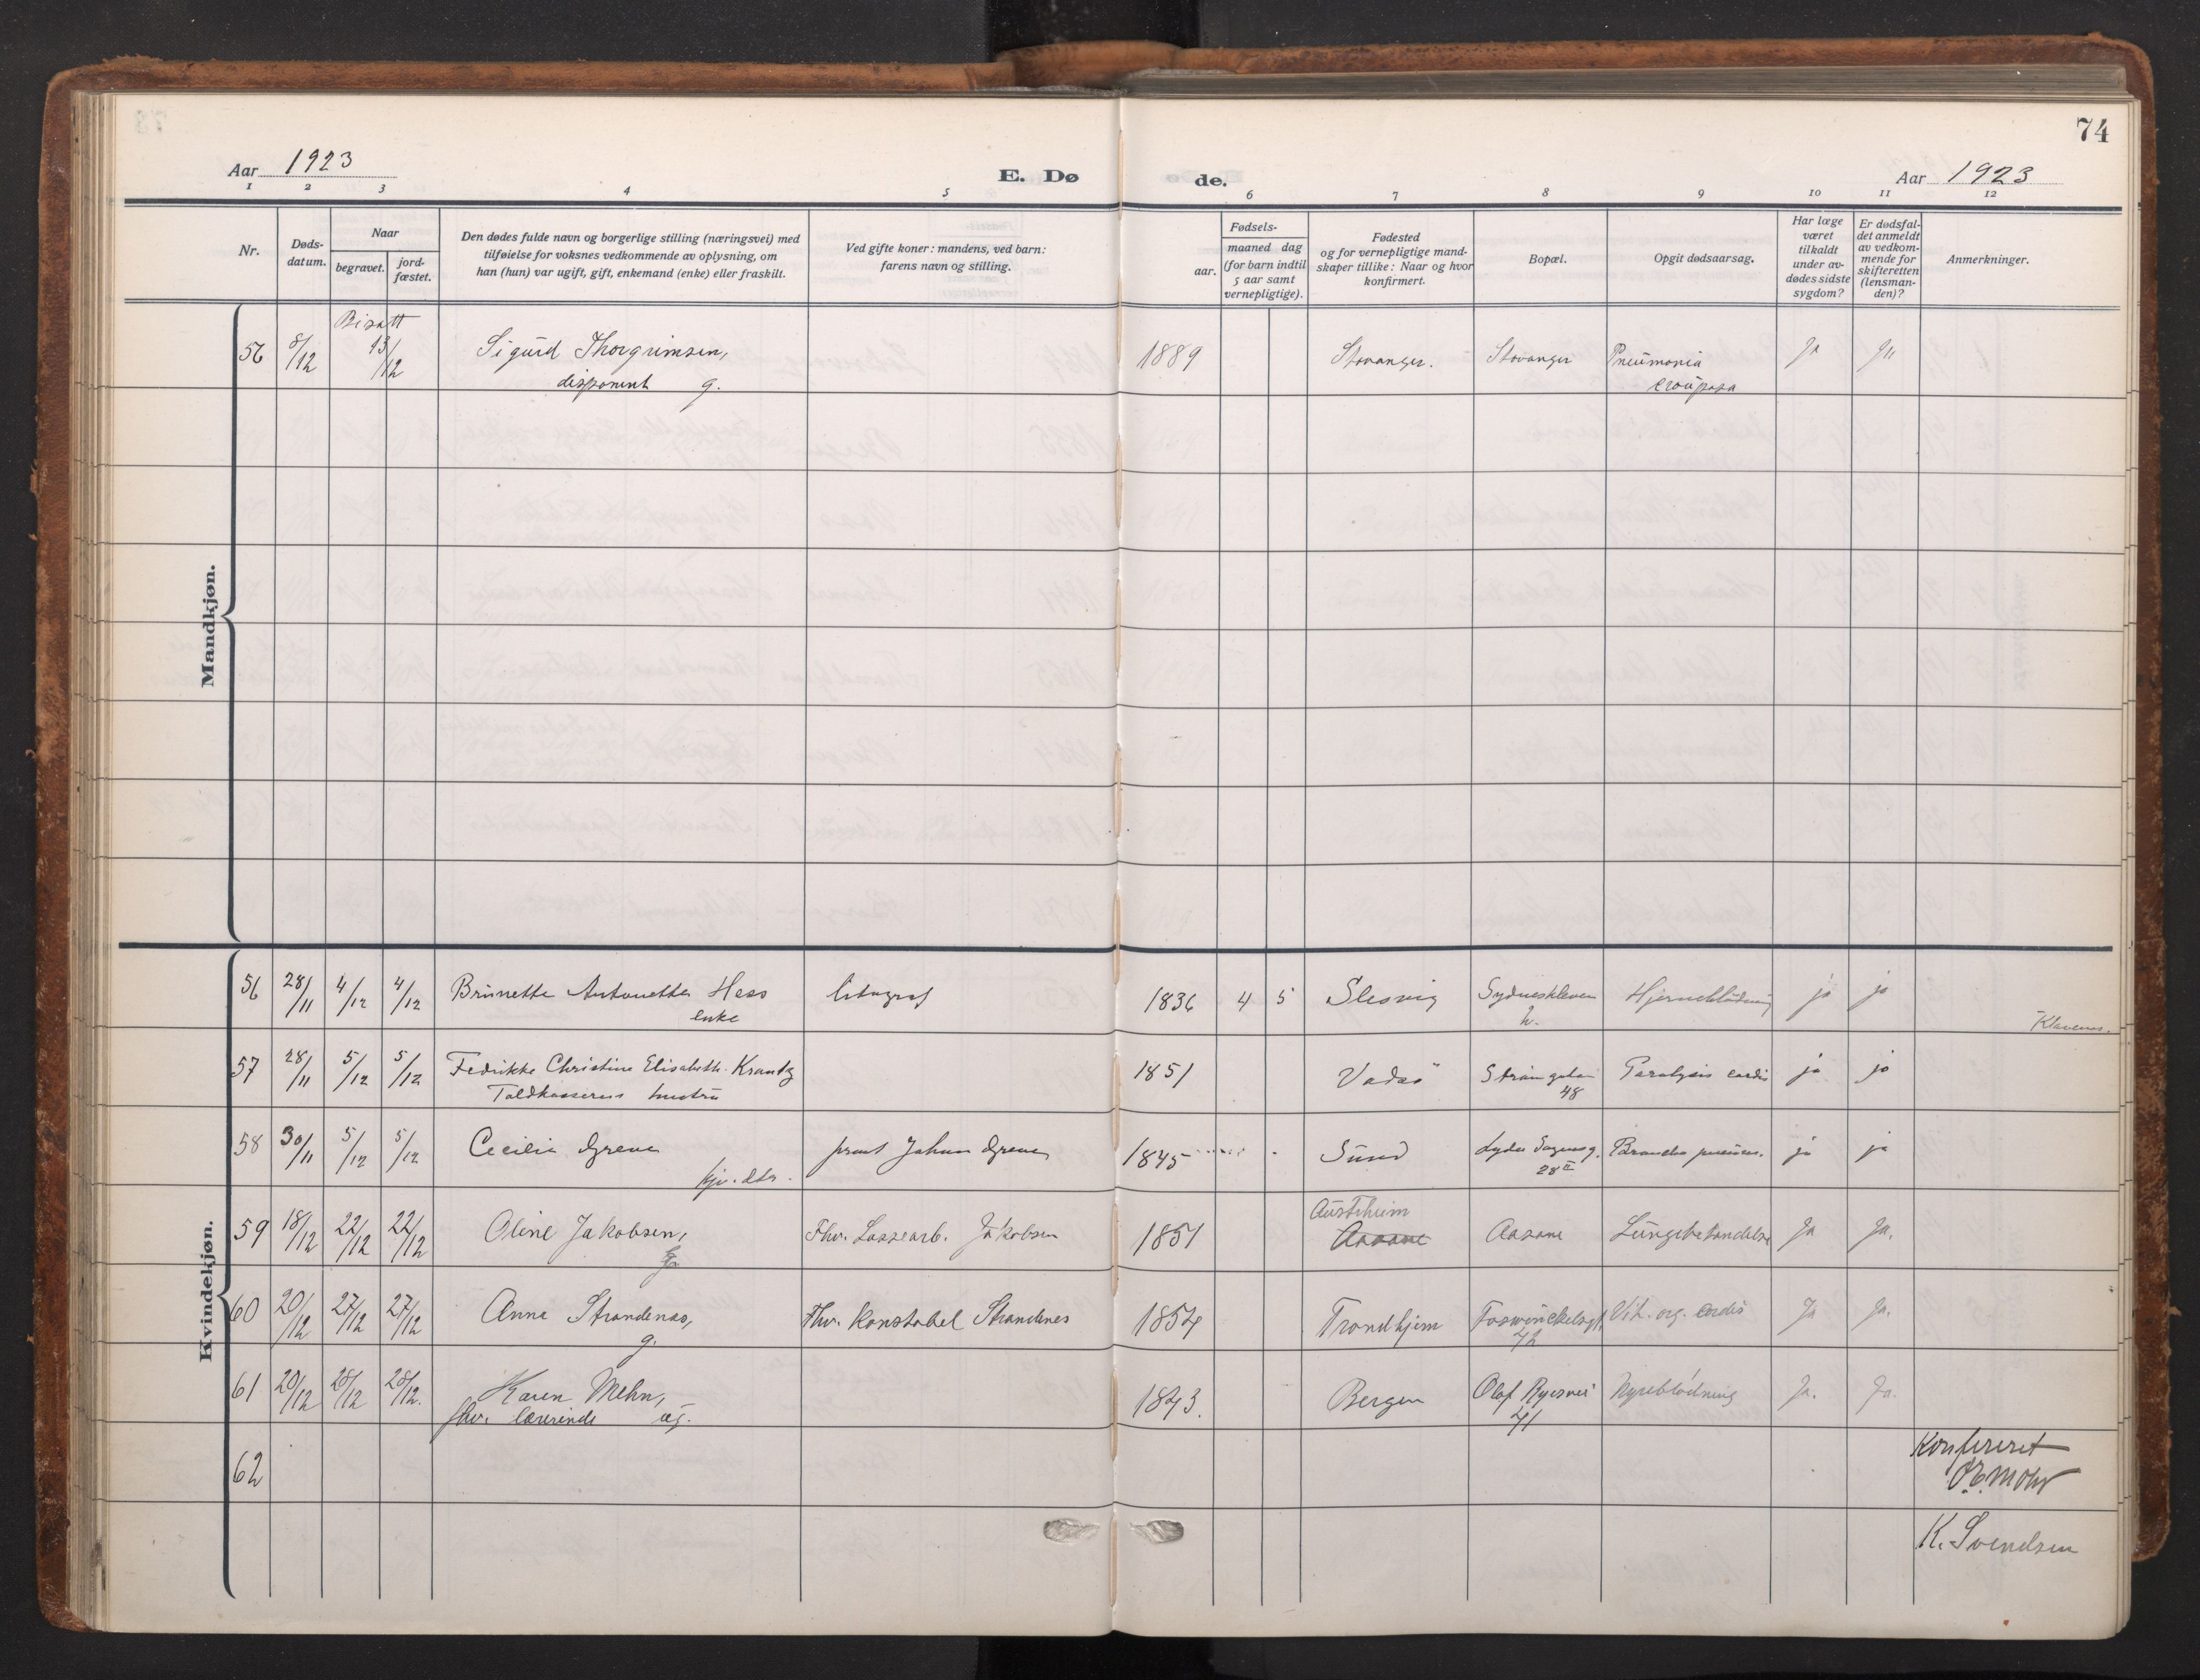 74
Aar 1923
E. Dø
de.
Aar 1923
1 2 3 4 5 6 7 8 9 10 11 12
Nr.
Døds-
datum.
Naar
begravet.
jord-
fæstet.
Den dødes fulde navn og borgerlige stilling (næringsvei) med
tilføielse for voksnes vedkommende av oplysning, om
han (hun) var ugift, gift, enkemand (enke) eller fraskilt.
Ved gifte koner: mandens, ved barn:
farens navn og stilling.
Fødsels-
aar.
maaned dag
(for barn indtil
5 aar samt
vernepligtige).
Fødested
og for vernepligtige mand-
skaper tillike: Naar og hvor
konfirmert.
Bopæl.
Opgit dødsaarsag.
Har læge
været
tilkaldt
under av-
dødes sidste
sygdom?
Er dødsfal-
det anmeldt
av vedkom-
mende for
skifteretten
(lensman-
den)?
Anmerkninger.
Mandkjøn.
Bisatt
56 8/12 13/12 Sigurd Thorgrimsen, 1889 Stavanger. Stavanger Pneumonia Ja Ja
disponent g. crouposa
Kvindekjøn.
56 28/11 4/12 4/12 Brünette Antonette Hess litograf 1836 4 5 Slesvig Sydneskleven Hjerneblødning ja ja
enke 2.
57 28/11 5/12 5/12 Fedrikke Christine Elisabeth Krantz 1851 Vadsö Strangaten Paralysis cordis ja ja
Toldkasserers hustru 48
58 30/11 5/12 5/12 Cecilie Greve prost Johan Greve 1845 Sund Lyder Sagensg. ja ja
28 II
59 18/12 22/12 22/12 Oline Jakobsen, Fhv. Lossearb. Jakobsen 1851 Austrheim Aasane Aasane Lungebetændelse Ja Ja.
60 20/12 27/12 27/12 Anna Strandenæs, Fhv. Konstabel Strandnes 1854 Trondhjem Vit. org. cordis Ja Ja.
g.
61 20/12 28/12 28/12. Karen Mehn, 1843. Bergen Olaf Ryesvei Nyreblødning Ja. Ja.
fhv. lærerinde ug. 41
62
Konfereret
O.E. Mohr
K. Svendsen